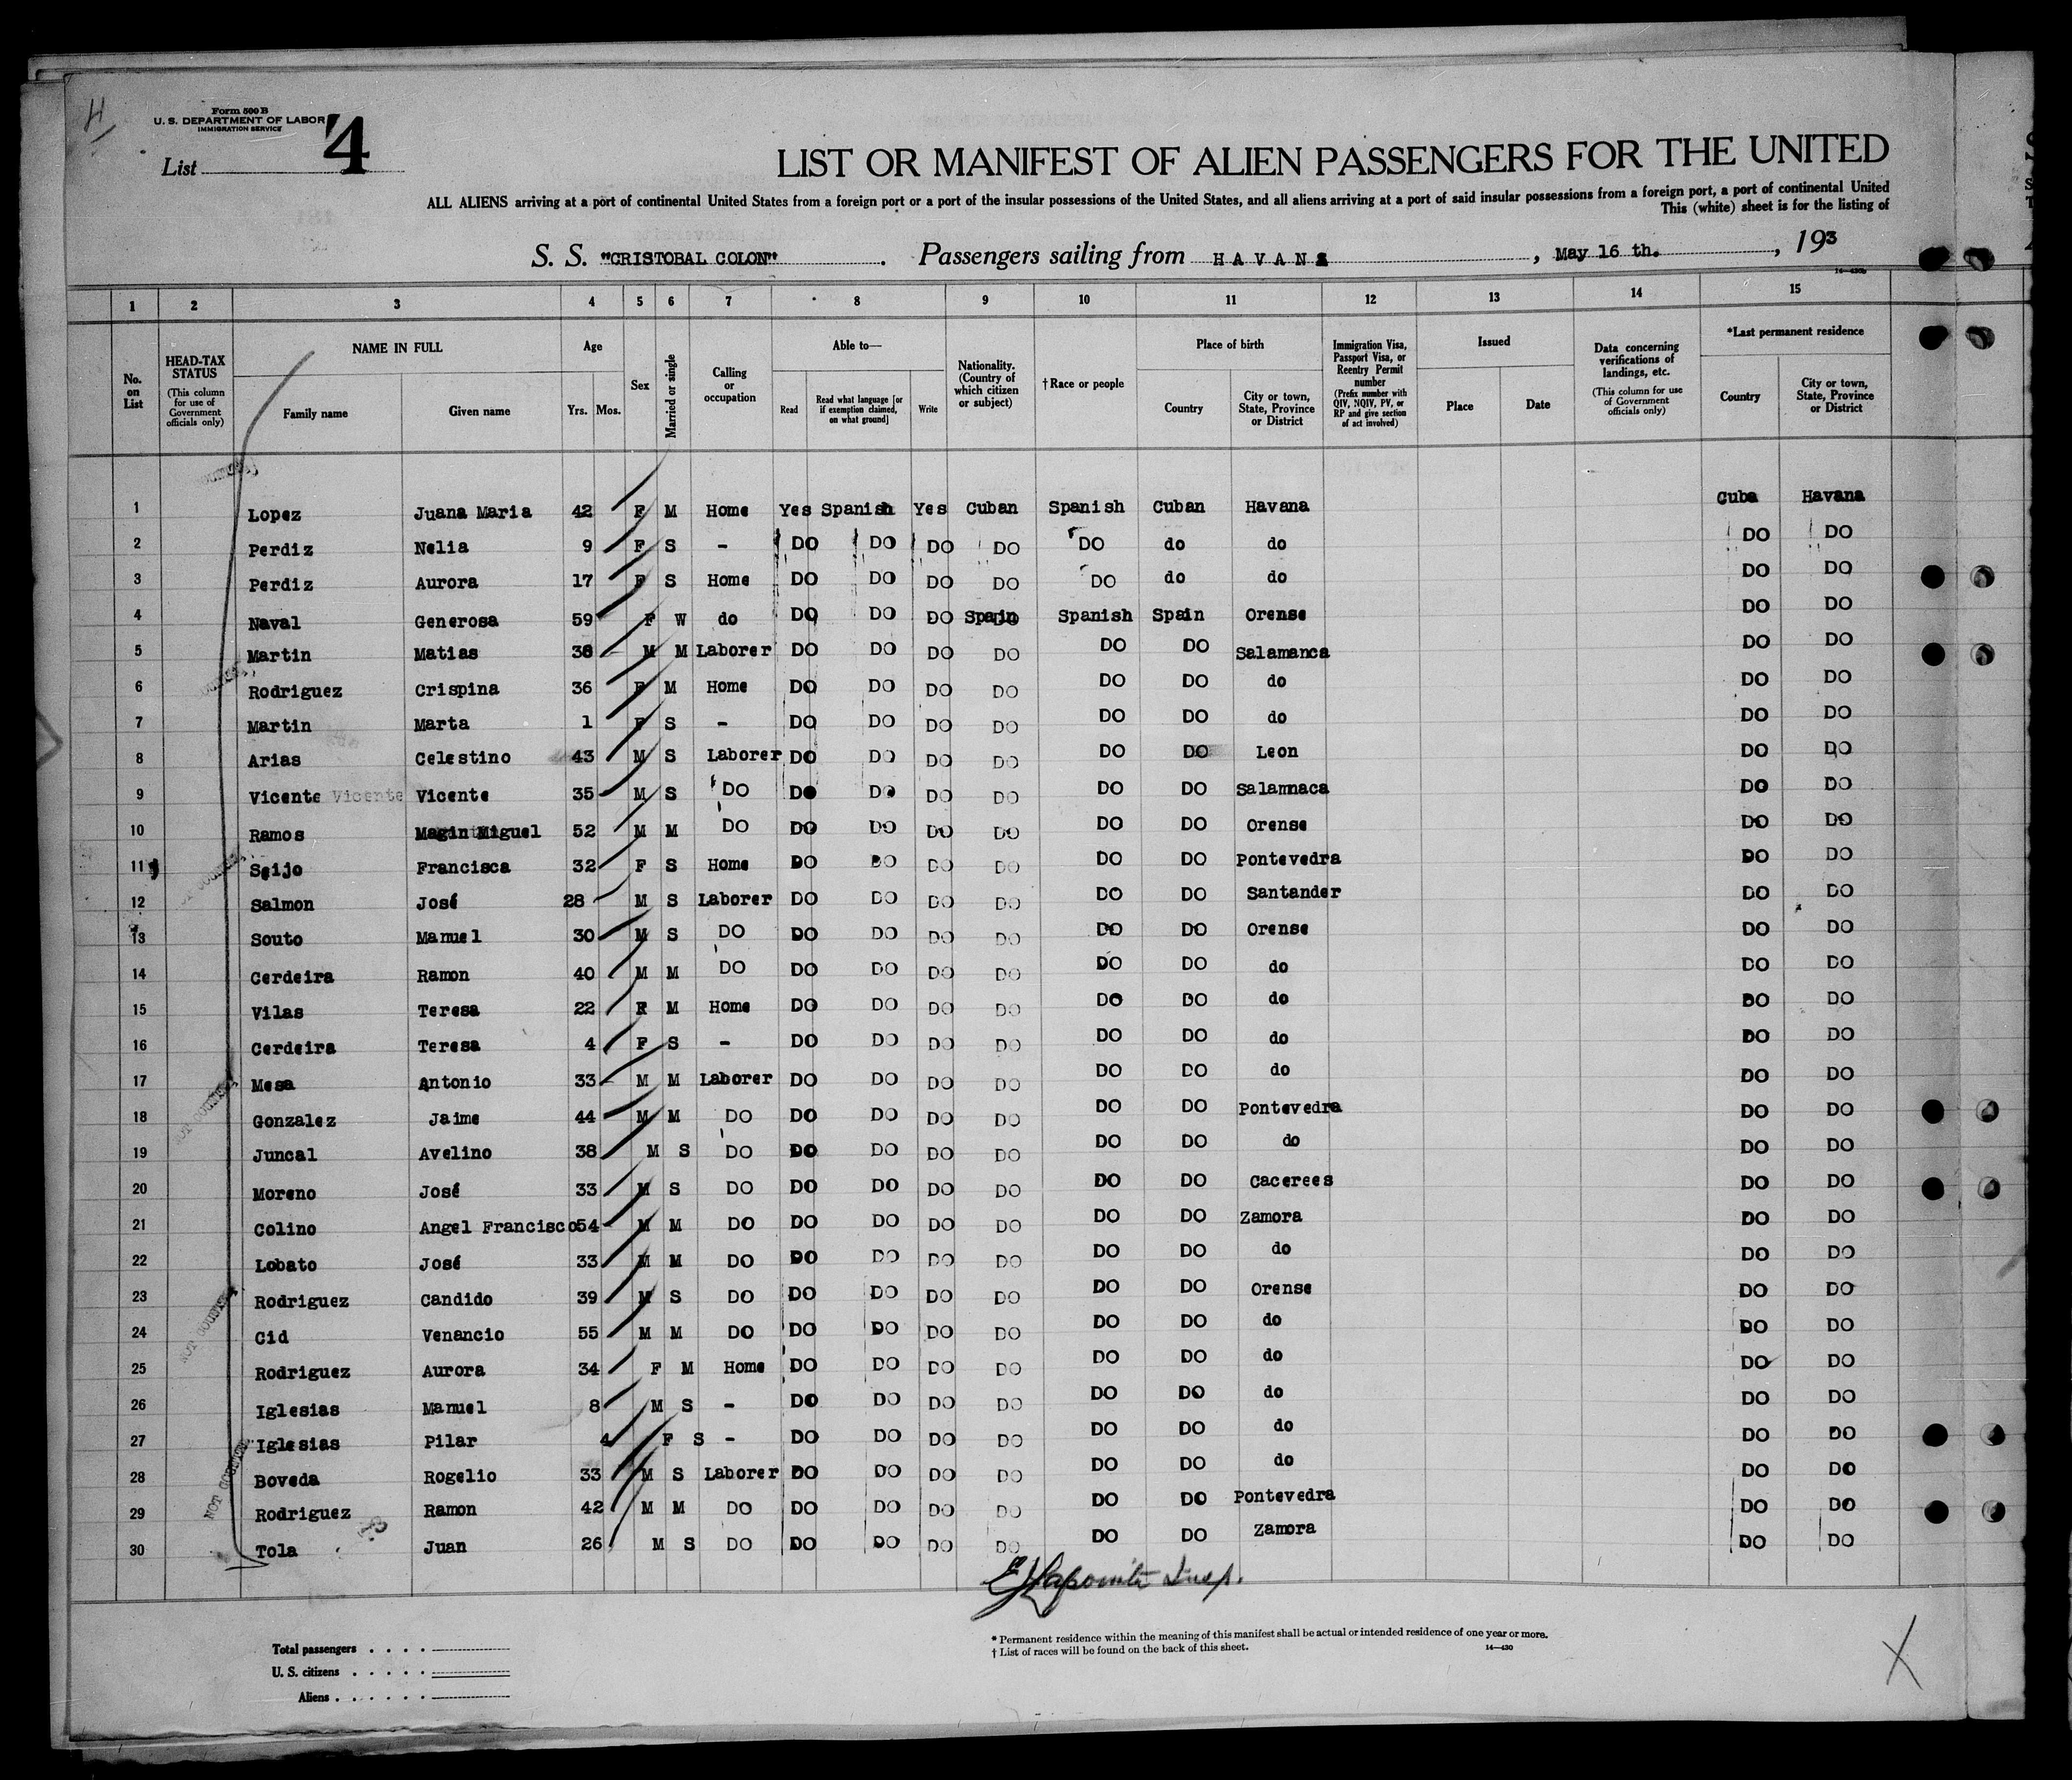 4
Form 500 B
U. S. DEPARTMENT OF LABOR
IMMIGRATION SERVICE
List 4
LIST OR MANIFEST OF ALIEN PASSENGERS FOR THE UNITED
ALL ALIENS arriving at a port of continental United States from a foreign port or a port of the insular possessions of the United States, and all aliens arriving at a port of said insular possessions from a foreign port, a port of continental United
This (white) sheet is for the listing of
S. S. "CRISTOBAL COLON" . Passengers sailing from HAVANA , May 16 th. , 193
14—430
1 2 3 4 5 6 7 8 9 10 11 12 13 14 15
No. on List
HEAD-TAX STATUS (This column for use of Government officials only)
NAME IN FULL
Family name Given name
Age
Yrs. Mos.
Sex
Married or single
Calling or occupation
Able to—
Read Read what language [or if exemption claimed, on what ground] Write
Nationality. (Country of which citizen or subject)
† Race or people
Place of birth
Country City or town, State, Province or District
Immigration Visa, Passport Visa, or Reentry Permit number (Prefix number with QIV, NQIV, PV, or RP and give section of act involved)
Issued
Place Date
Data concerning verifications of landings, etc. (This column for use of Government officials only)
*Last permanent residence
Country City or town, State, Province or District
1 Lopez Juana Maria 42 F M Home Yes Spanish Yes Cuban Spanish Cuban Havana Cuba Havana
2 Perdiz Nelia 9 F S - DO DO DO DO DO do do DO DO
3 Perdiz Aurora 17 F S Home DO DO DO DO DO do do DO DO
4 Naval Generosa 59 F W do DO DO DO Spain Spanish Spain Orense DO DO
5 Martin Matias 38 M M Laborer DO DO DO DO DO DO Salamanca DO DO
6 Rodriguez Crispina 36 F M Home DO DO DO DO DO DO do DO DO
7 Martin Marta 1 F S - DO DO DO DO DO DO do DO DO
8 Arias Celestino 43 M S Laborer DO DO DO DO DO DO Leon DO DO
9 Vicente Vicente Vicente 35 M S DO DO DO DO DO DO DO Salamnaca DO DO
10 Ramos Magin Miguel 52 M M DO DO DO DO DO DO DO Orense DO DO
11 Seijo Francisca 32 F S Home DO DO DO DO DO DO Pontevedra DO DO
12 Salmon José 28 M S Laborer DO DO DO DO DO DO Santander DO DO
13 Souto Manuel 30 M S DO DO DO DO DO DO DO Orense DO DO
14 Cerdeira Ramon 40 M M DO DO DO DO DO DO DO do DO DO
15 Vilas Teresa 22 F M Home DO DO DO DO DO DO do DO DO
16 Cerdeira Teresa 4 F S - DO DO DO DO DO DO do DO DO
17 Mesa Antonio 33 M M Laborer DO DO DO DO DO DO do DO DO
18 Gonzalez Jaime 44 M M DO DO DO DO DO DO DO Pontevedra DO DO
19 Juncal Avelino 38 M S DO DO DO DO DO DO DO do DO DO
20 Moreno José 33 M S DO DO DO DO DO DO DO Cacerees DO DO
21 Colino Angel Francisco 54 M M DO DO DO DO DO DO DO Zamora DO DO
22 Lobato José 33 M M DO DO DO DO DO DO DO do DO DO
23 Rodriguez Candido 39 M S DO DO DO DO DO DO DO Orense DO DO
24 Cid Venancio 55 M M DO DO DO DO DO DO DO do DO DO
25 Rodriguez Aurora 34 F M Home DO DO DO DO DO DO do DO DO
26 Iglesias Manuel 8 M S - DO DO DO DO DO DO do DO DO
27 Iglesias Pilar 4 F S - DO DO DO DO DO DO do DO DO
28 Boveda Rogelio 33 M S Laborer DO DO DO DO DO DO do DO DO
29 Rodriguez Ramon 42 M M DO DO DO DO DO DO DO Pontevedra DO DO
30 Tola Juan 26 M S DO DO DO DO DO DO DO Zamora DO DO
NOT COUNTED
Insp.
Total passengers
U. S. citizens
Aliens
* Permanent residence within the meaning of this manifest shall be actual or intended residence of one year or more.
† List of races will be found on the back of this sheet. 14—430
X